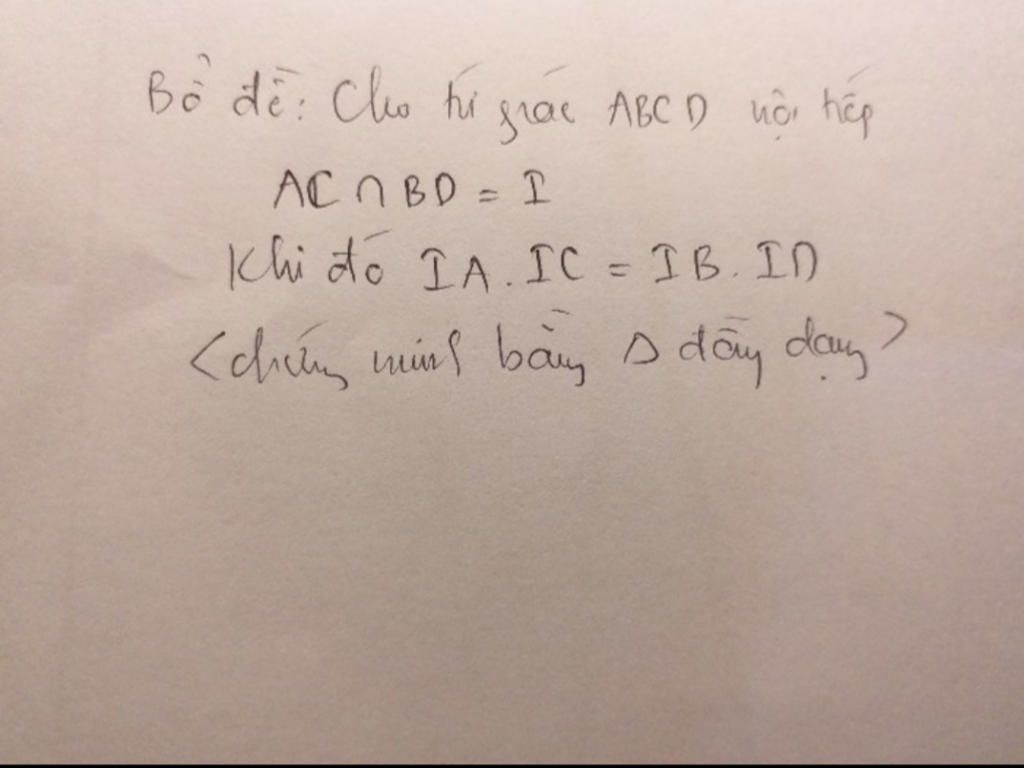 Bổ đề: Cho tứ giác ABCD nội tiếp
AC ∩ BD = I
Khi đó IA . IC = IB . ID
<chứng minh bằng Δ đồng dạng>